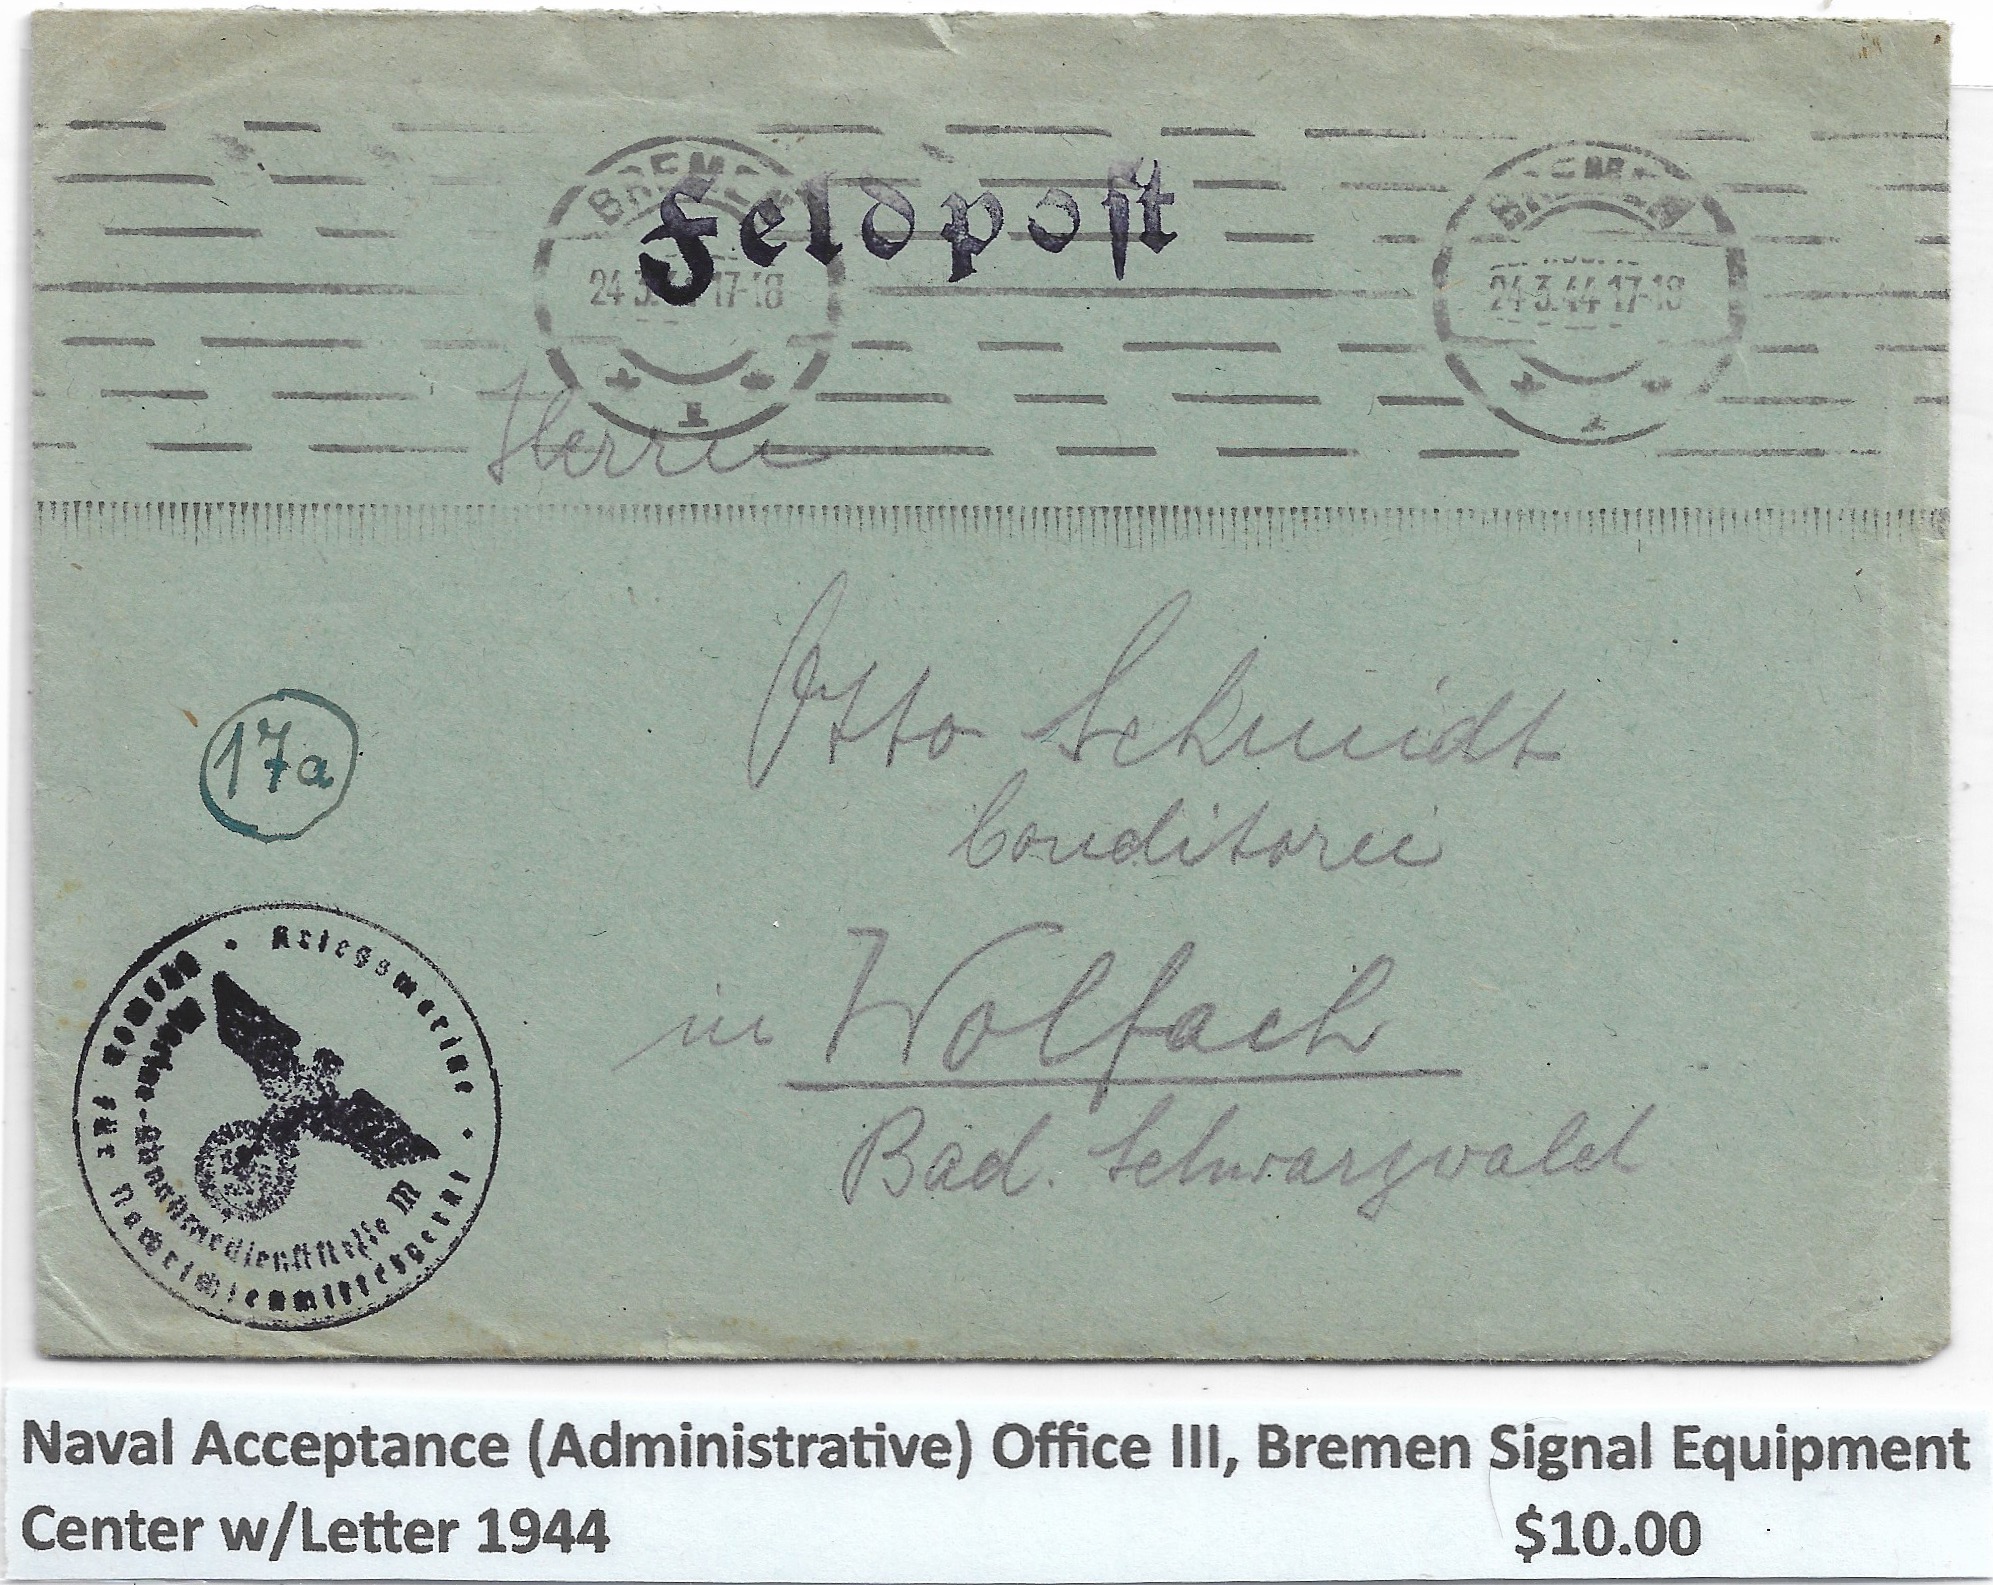 BREMEN
24.3.44 17-18
Feldpost
BREMEN
24.3.44 17-18
Herrn
Otto Schmidt
Conditorei
in Wolfach
Bad. Schwarzwald
17a
Kriegsmarine
für Nachrichtenmittelgerät
Marine-Abnahmedienststelle
Naval Acceptance (Administrative) Office III, Bremen Signal Equipment
Center w/Letter 1944 $10.00